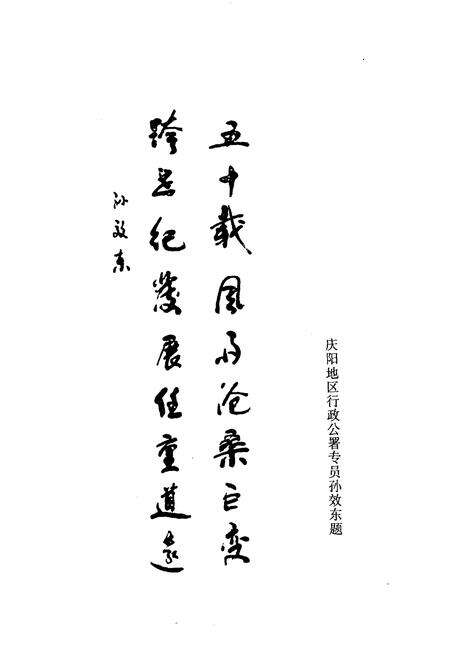 庆阳地区行政公署专员孙效东题
五十载风雨沧桑巨变
跨世纪发展任重道远
孙效东